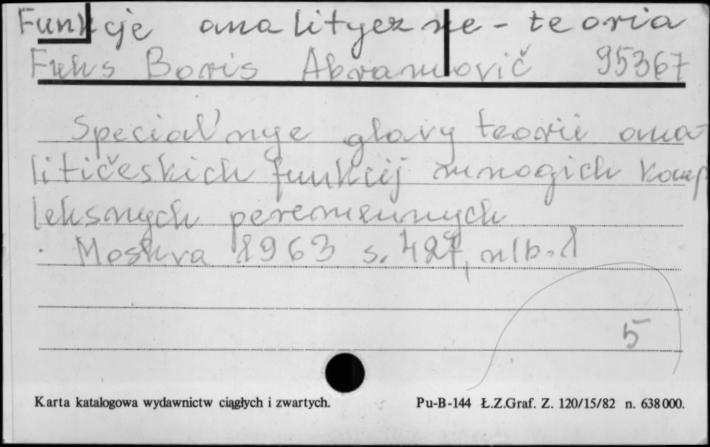 Funkcje analityczne - teoria
Fuks Boris Abramovič 95367
Special'nye glavy teorii ana-
litičeskich funkcij mnogich komp
leksnych peremennych
Moskva 1963 s. 427, nlb. 1
5
Karta katalogowa wydawnictw ciągłych i zwartych. Pu-B-144 Ł.Z.Graf. Z. 120/15/82 n. 638000.